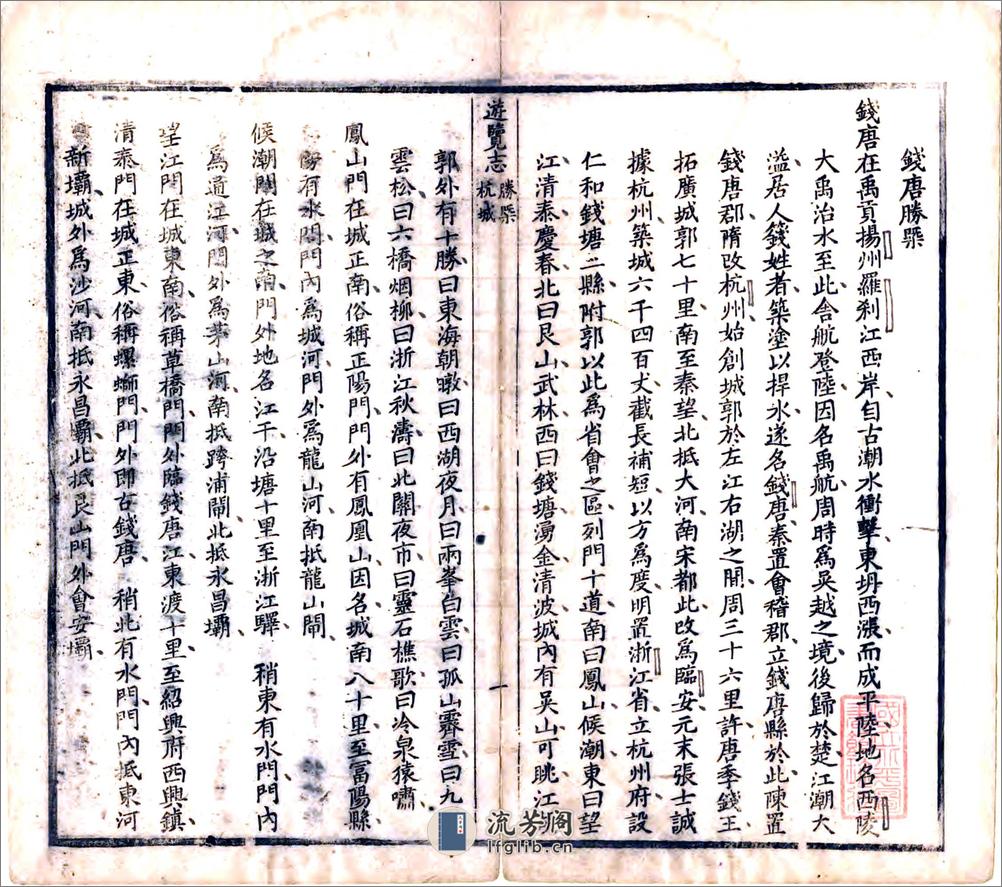 錢唐勝槩
錢唐在禹貢揚州羅刹江西岸自古潮水衝擊東坍西漲而成平陸地名西陵
大禹治水至此舍航登陸因名禹航周時為吳越之境後歸於楚江潮大
溢居人錢姓者築塗以捍水遂名錢唐秦置會稽郡立錢唐縣於此陳置
錢唐郡隋改杭州始創城郭於左江右湖之間周三十六里許唐季錢王
拓廣城郭七十里南至秦望北抵大河南宋都此改為臨安元末張士誠
據杭州築城六千四百丈截長補短以方為度明置浙江省立杭州府設
仁和錢塘二縣附郭以此為省會之區列門十道南曰鳳山候潮東曰望
江清泰慶春北曰艮山武林西曰錢塘湧金清波城內有吳山可眺江
遊覽志
勝槩
杭城
一
郭外有十勝曰東海朝暾曰西湖夜月曰兩峯白雲曰孤山霽雪曰九
雲松曰六橋烟柳曰浙江秋濤曰北關夜市曰靈石樵歌曰冷泉猿嘯
鳳山門在城正南俗稱正陽門門外有鳳凰山因名城南八十里至富陽縣
有水門門內為城河門外為龍山河南抵龍山閘
候潮門在城之南門外地名江干沿塘十里至浙江驛 稍東有水門門內
為通江河門外為茅山河南抵跨浦閘北抵永昌壩
望江門在城東南俗稱草橋門門外臨錢唐江東渡十里至紹興府西興鎮
清泰門在城正東俗稱螺螄門門外即古錢唐 稍北有水門門內抵東河
新壩城外為沙河南抵永昌壩北抵艮山門外會安壩
流芳阁
lfglib.cn